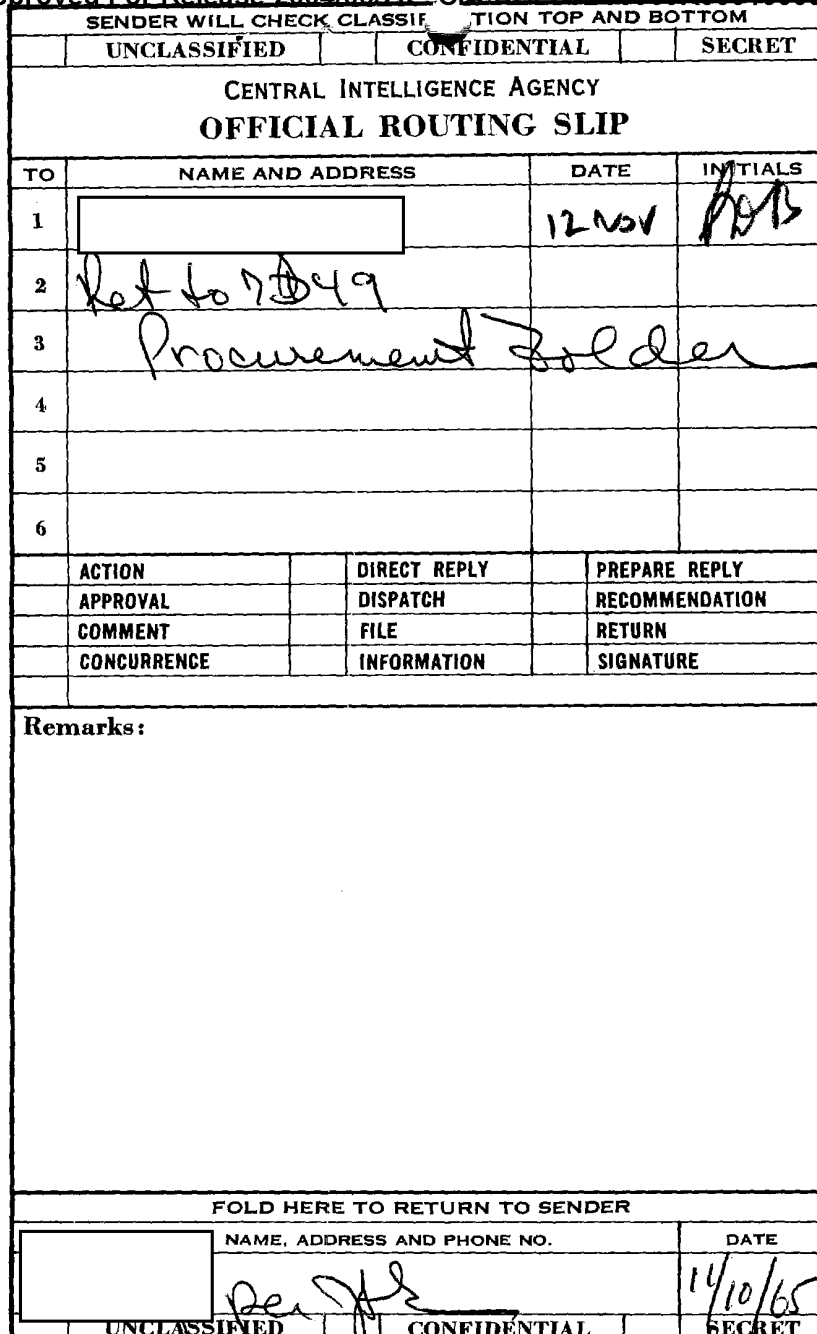 Approved For Release
SENDER WILL CHECK CLASSIF TION TOP AND BOTTOM
UNCLASSIFIED CONFIDENTIAL SECRET
CENTRAL INTELLIGENCE AGENCY
OFFICIAL ROUTING SLIP
TO NAME AND ADDRESS DATE INITIALS
1 12 Nov
2 Ret to 7D49
3 Procurement Folder
4
5
6
ACTION DIRECT REPLY PREPARE REPLY
APPROVAL DISPATCH RECOMMENDATION
COMMENT FILE RETURN
CONCURRENCE INFORMATION SIGNATURE
Remarks:
FOLD HERE TO RETURN TO SENDER
NAME, ADDRESS AND PHONE NO. DATE
/10/65
UNCLASSIFIED CONFIDENTIAL SECRET